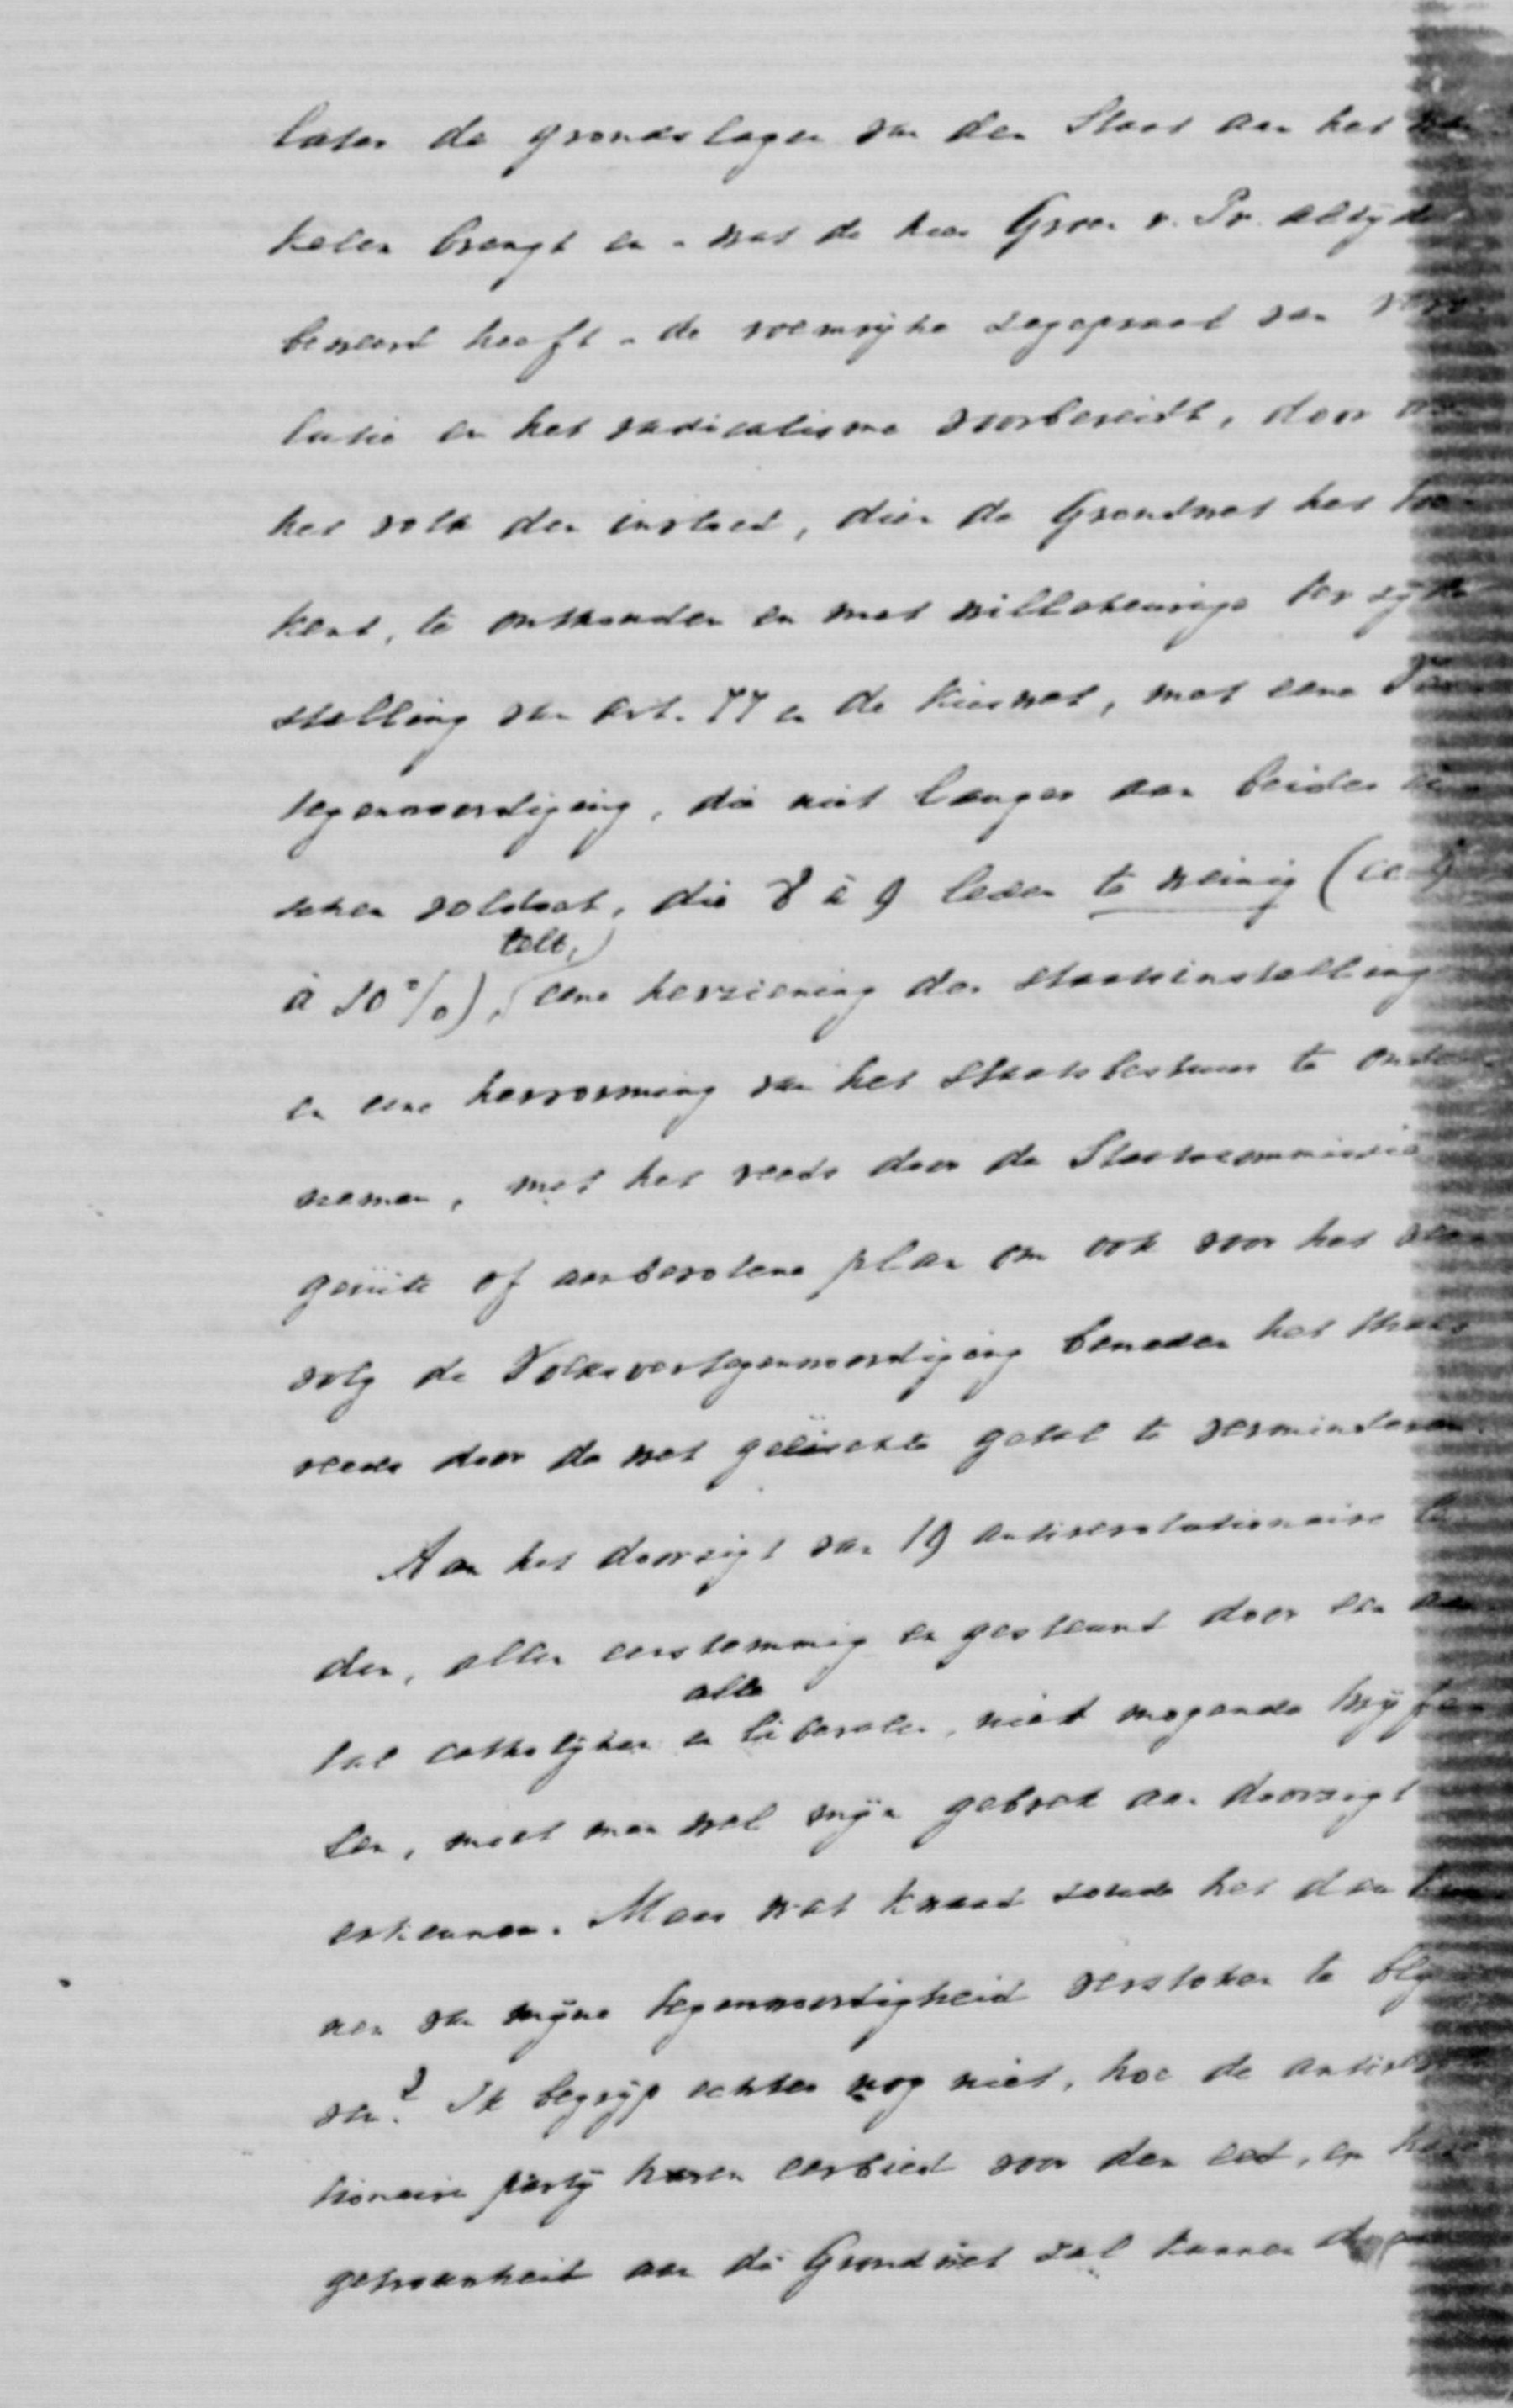 later de grondslagen van den Staat aan het wan
kelen brengt en - wat de heer Groen v. Pr. altyd
beweerd heeft - de roemryke zegepraal van revo
lutie en het radicalisme voorbereidt, door aan
het volk den invloed, dien de Grondwet het toe
kent, te onthouden en met willekeurige ter zyde
stelling van art. 77 en de kieswet, met eene Ver
tegenwoordiging, die niet langer aan beider
schen voldoet, die 8 à 9 leden te weinig (
à 10%), telt, eene herziening der staatsinstelling
en eene hervorming van het staatsbestuur te onder
nemen, met het reeds door de Staatscommissie
geuite of aanbevolene plan om ook voor het ver
volg de Volksvertegenwoordiging beneden het thans
reeds door de wet geëischte getal te verminderen.
Aan het doorzigt van 19 antirevolutionaire le
den, allen eenstemmig en gesteund door een aan
tal catholyken en alle liberalen, niet mogende twyfe
len, moet men wel myn gebrek aan doorzigt
erkennen. Maar wat kwaad zoude het dan kun
nen van myne tegenwoordigheid verstoken te bly
ven? Ik begryp echter nog niet, hoe de antirevolu
tionaire party haren eerbied voor den eed, en hare
getrouwheid aan de Grondwet zal kunnen